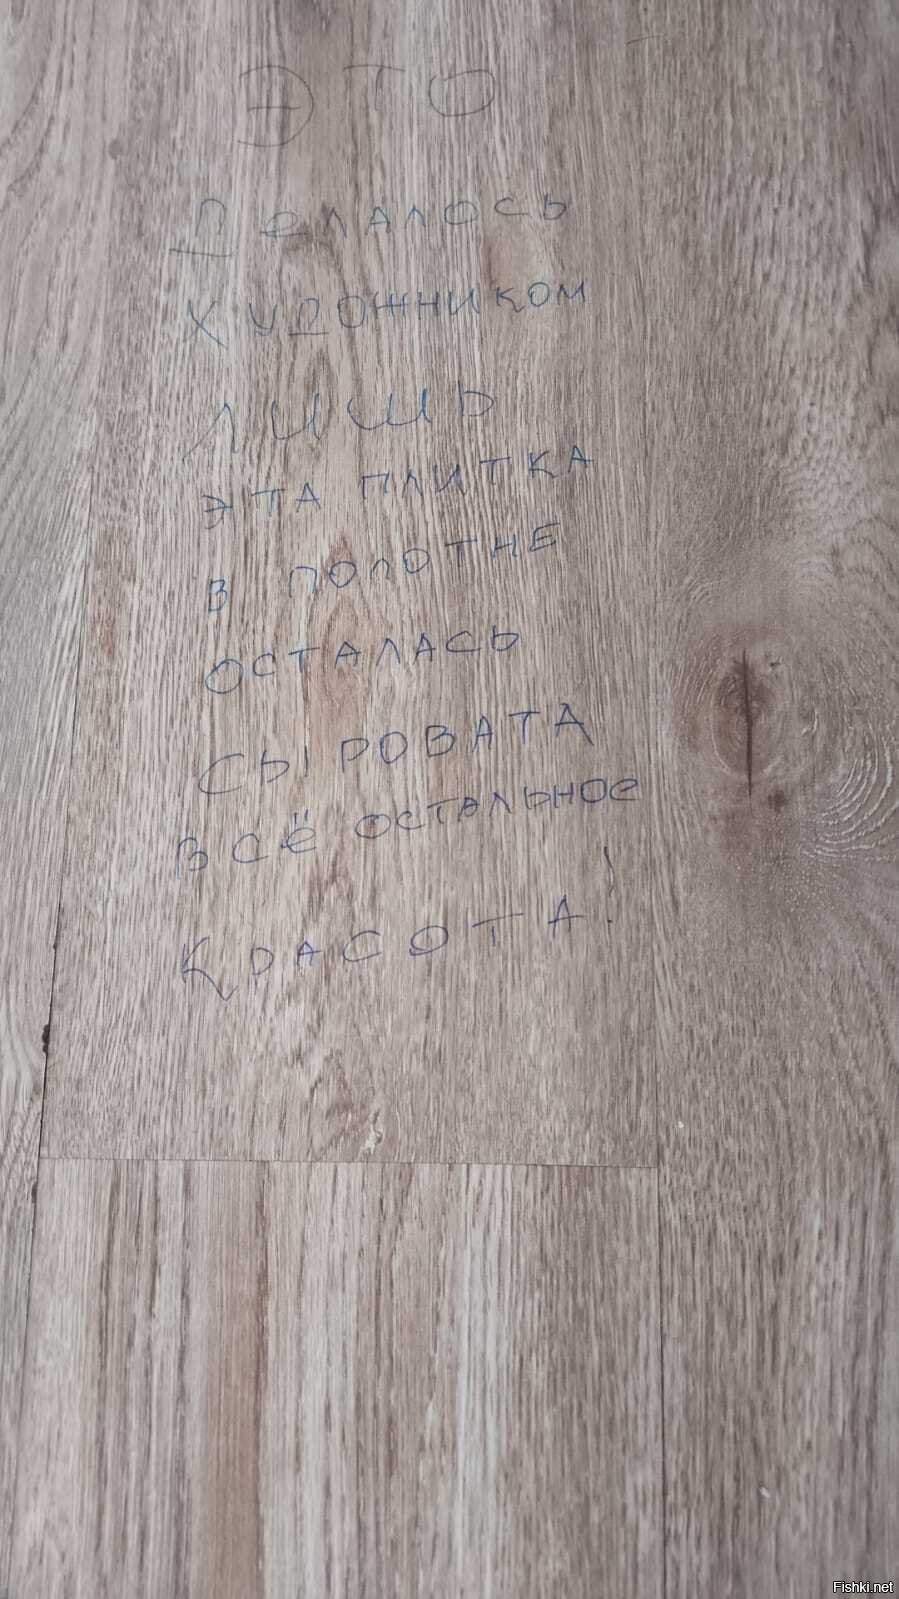 ЭТО
Делалось
ХУДОЖНИКОМ
ЛИШЬ
ЭТА ПЛИТКА
В ПОЛОТНЕ
ОСТАЛАСЬ
СЫРОВАТА
ВСЁ ОСТАЛЬНОЕ
КРАСОТА!
Fishki.net